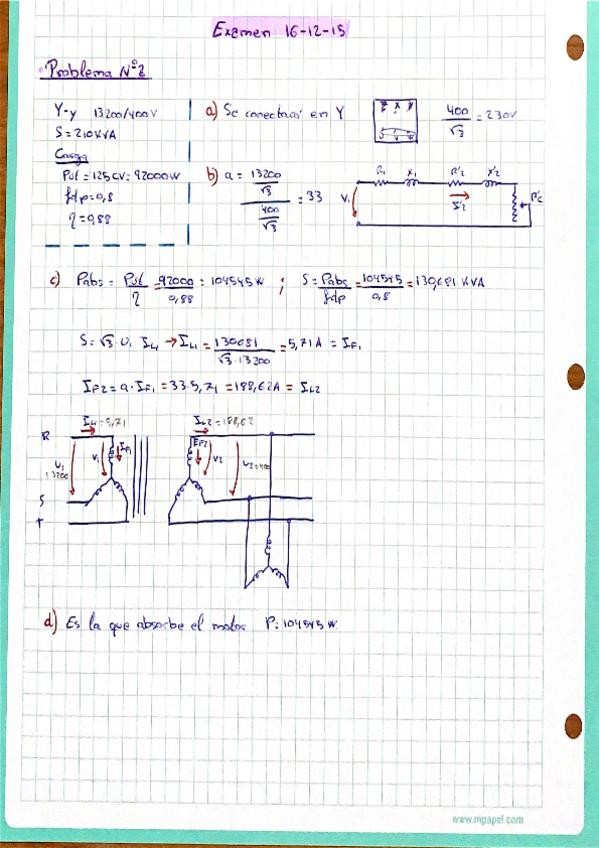 Examen 16-12-15
Problema Nº2
Y-y 13200/400V
S = 210KVA
Carga
Put = 125CV = 92000W
fdp = 0,8
η = 0,88
a) Se conectará en Y
400/√3 = 230V
b) a = (13200/√3)/(400/√3) = 33
V₁ R₁ X₁ R'₂ X'₂ I'₂ R'c
c) Pabs = Put/η = 92000/0,88 = 104545W ; S = Pabs/fdp = 104545/0,8 = 130,681 KVA
S = √3·U₁ I_L1 → I_L1 = 130681/(√3·13200) = 5,71A = I_F1
I_F2 = a·I_F1 = 33·5,71 = 188,62A = I_L2
I_L1 = 5,71 I_L2 = 188,62
R I_F1 I_F2
U₁ 13200 V₁ V₂ U₂=400
S
T
d) Es la que absorbe el motor P = 104545 W
www.mpapel.com